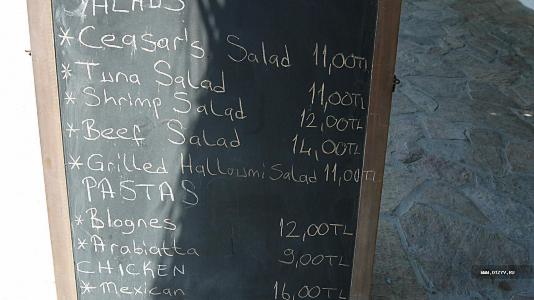 SALADS
* Ceasar's Salad 11,00TL
* Tuna Salad 11,00TL
* Shrimp Salad 12,00TL
* Beef Salad 14,00TL
* Grilled Halloumi Salad 11,00TL
PASTAS
* Blognes 12,00TL
* Arabiatta 9,00TL
CHICKEN
* Mexican 16,00TL
WWW.OTZYV.RU